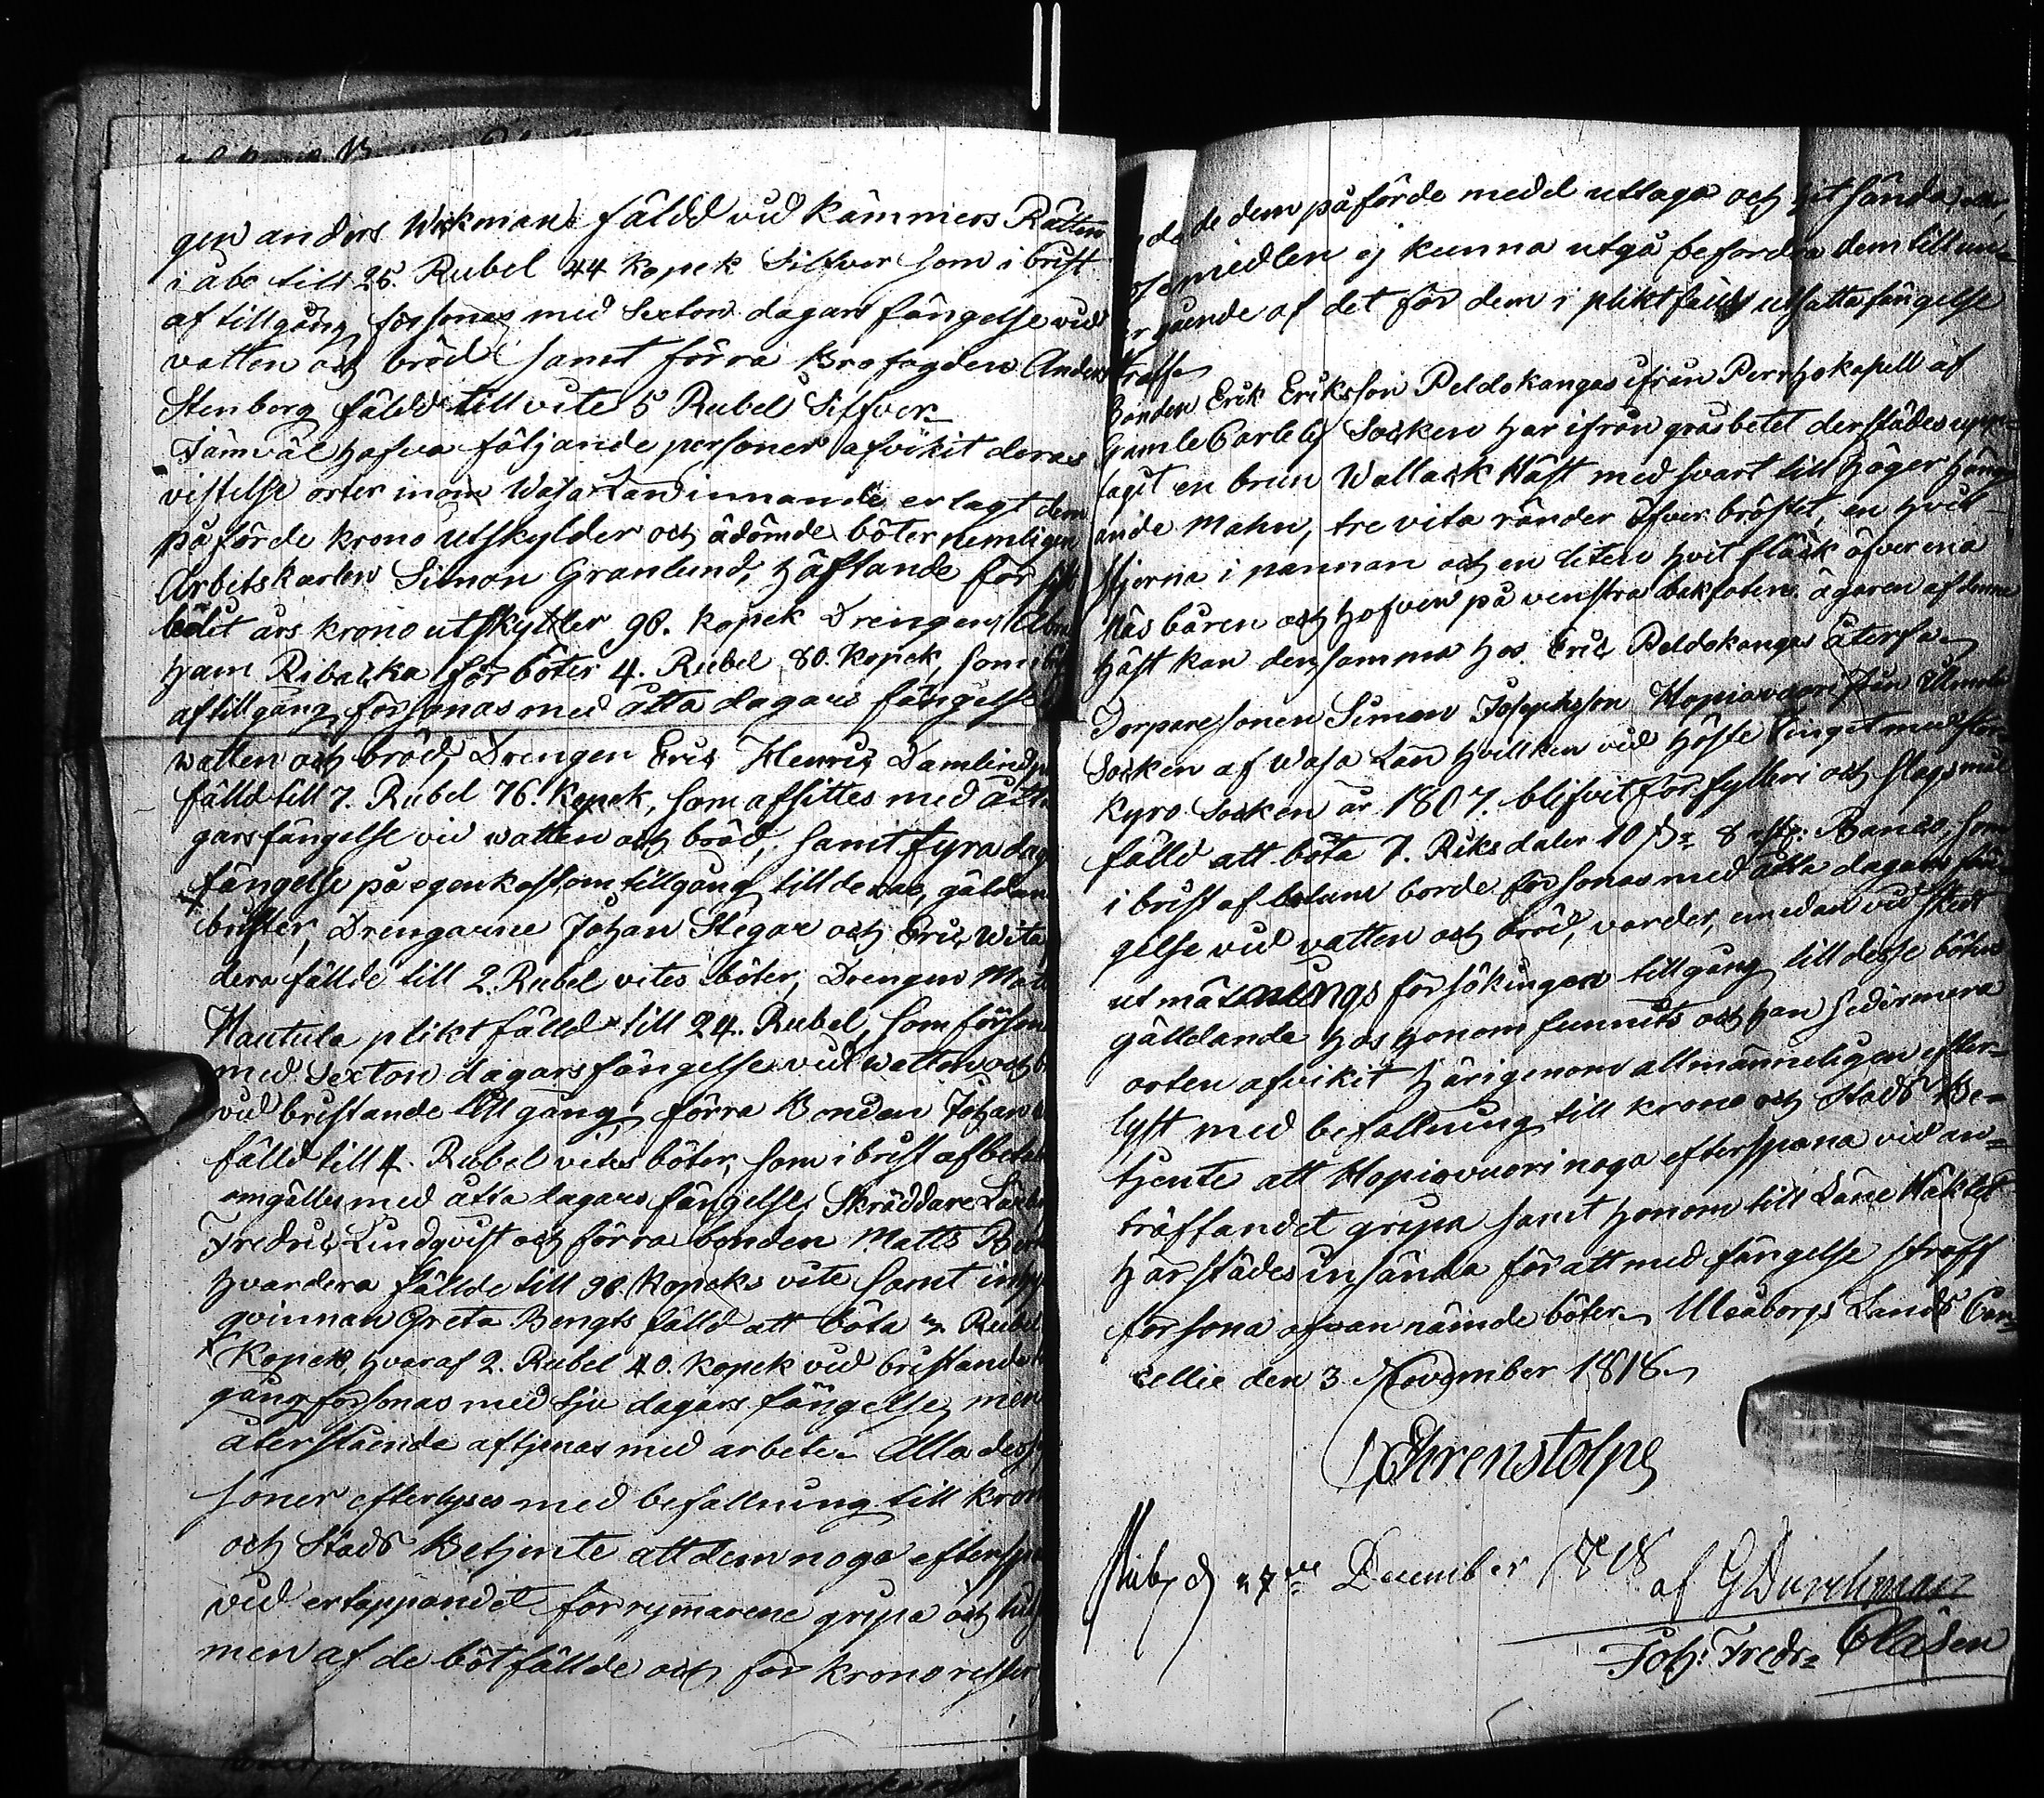 gen anders Wikman fäldd vid Kämmers Rätten
i åbo till 25. Rubel 44 Kopek Silfver som i brist
af tillgång försonas med Sexton dagars fängelse vid
vatten och bröd samt förra Brofogden Anders
Stenberg fäldd till vite 5 Rubel Silfver
Jämväl hafva följande personer afvikit deras
vistelse orter inom Wasa Län innan de erlagt dem
påförde krono utskylder och ådömde böter nemligen
Arbetskarlen Simon Granlund, häftande för
års krono utskylder 98. Kopek Drengen Abra
ham Ribacka för böter 4. Rubel 80. Kopek, som i
af tillgång försonas med åtta dagars fängelse
watten och bröd, Drengen Eric Henric Damlin
fälld till 7. Rubel 76. Kopek, som afsittes med åtta
gars fängelse vid watten och bröd, samt fyra dag
fängelse på egen kost om tillgång till deras, gäldan
brister, Drengarne Johan Stegar och Eric Wita
dera fällde till 2. Rubel vites böter, Drengen Matt
Hautula pliktfälld till 24. Rubel, som förson
med Sexton dagars fängelse vid watten och
vid bristande tillgång, förra Bonden Johan
fälld till 4. Rubel vites böter, som i brist af beta
omgälles med åtta dagars fängelse, Skräddare Lär
Fredric Lindqvist och förra bonden Matts
hvardera fällde till 98. Kopeks vite samt inhys
qvinnan Greta Bengts fälld att böta Rubel
Kopek, hvaraf 2. Rubel 40. Kopek vid bristande
gång försonas med sju dagars fängelse, men
återstående aftjenas med arbete. Alla dess
soner efterlyses med befallning till kron
och Stads Betjente att dem noga efterspa
vid ertappandet förrymarene gripa och
men af de bötfällde och för krono rester
de dem påförde medel uttaga och hit sända
medlen ej kunna utgå befordra dem till un=
gående af det för dem i pliktfälld utsatta fängelse
straff
Bonden Erik Eriksson Peldokangas ifrån Perrho kapell af
Gamle Carleby Socken har ifrån gråsbetet derstädes upp=
tagit en brun Wallack Häst med svart till höger häng
ande Mahn, tre vita ränder öfver bröstet, en hvit
stjerna i pannan och en liten hvit fläck öfver ena
Näsbåren och hofven på venstra bakfoten. ägaren af denna
häst kan densamma hos Eric Peldokangas återfå
Torparesonen Simon Josephsson Hopiavuori från
Socken af Wasa Län hvilken vid höste Tinget med Stor
Kyro Socken år 1807. blifvit för fylleri och slagsmål
fälld att böta 7. Riksdaler 10 s. 8 rst: Banco, som
i brist af botum borde försonas med åtta dagars fän=
gelse vid vatten och bröd, varder, emedan vid skedt
utmätnings försök ingen tillgång till desse böters
gälldande hos honom funnits och han sedermera
orten afvikit härigenom allmänneligen efter=
lyst med befallning till krono och Stads Be=
tjente att Hopiavuori noga efterspana vid an=
träffandet gripa samt honom till Läne Häktet
härstädes insända för att med fängelse straff
försona ofvan nämde böter. Uleåborgs Lands Can=
cellie den 3 November 1818.
Ehrenstolpe
d 27de December 1818 af G Durchman
Joh: Fredr= Clasen